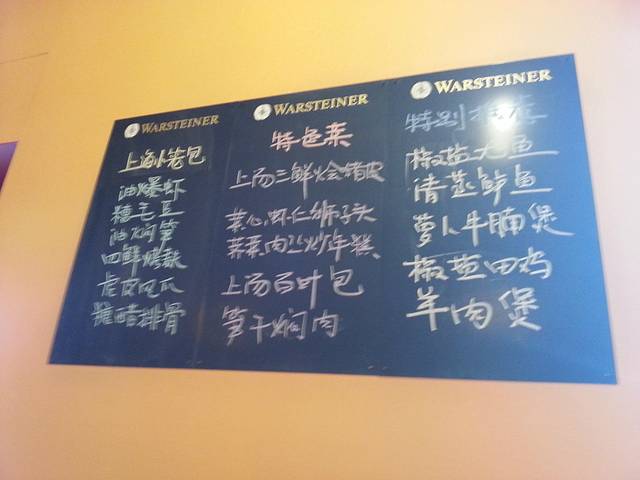 WARSTEINER
上海小笼包
油爆虾
糟毛豆
油焖笋
四鲜爆麸
虎皮瓜瓜
糖醋排骨
WARSTEINER
特色菜
上汤三鲜烩猪皮
菜心虾仁狮子头
荠菜肉丝炒年糕
上汤百叶包
笋干焖肉
WARSTEINER
特别推荐
椒盐九鱼
清蒸鲈鱼
萝卜牛腩煲
椒盐田鸡
羊肉煲